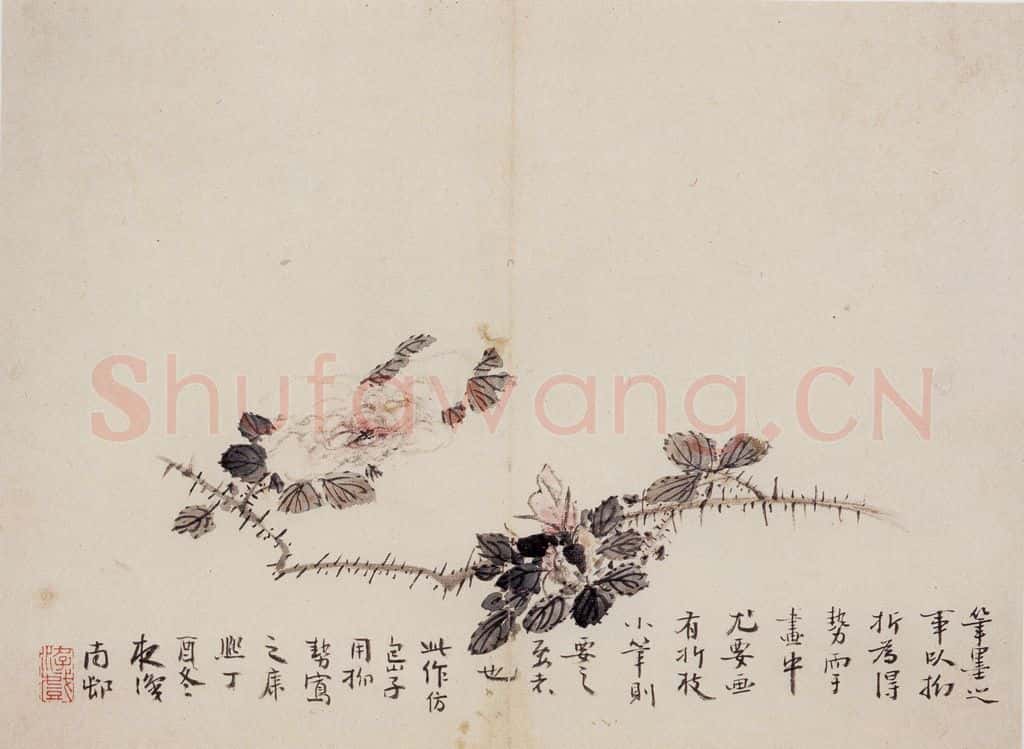 Shufawang.CN
筆墨之
事以拗
折為得
勢而于
畫中
尤要画
有折枝
小筆則
要之
至者
也
此作仿
包山子
用拗
勢寫
之庶
幾丁
酉冬
夜漫
南邨